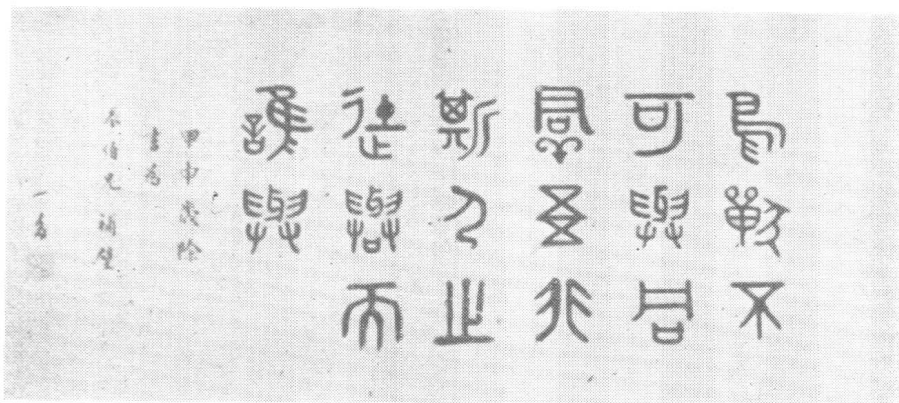 鳥獸不
可與同
羣吾非
斯人之
徒與而
誰與
甲申歲除
書為
伯兄 補壁
一多